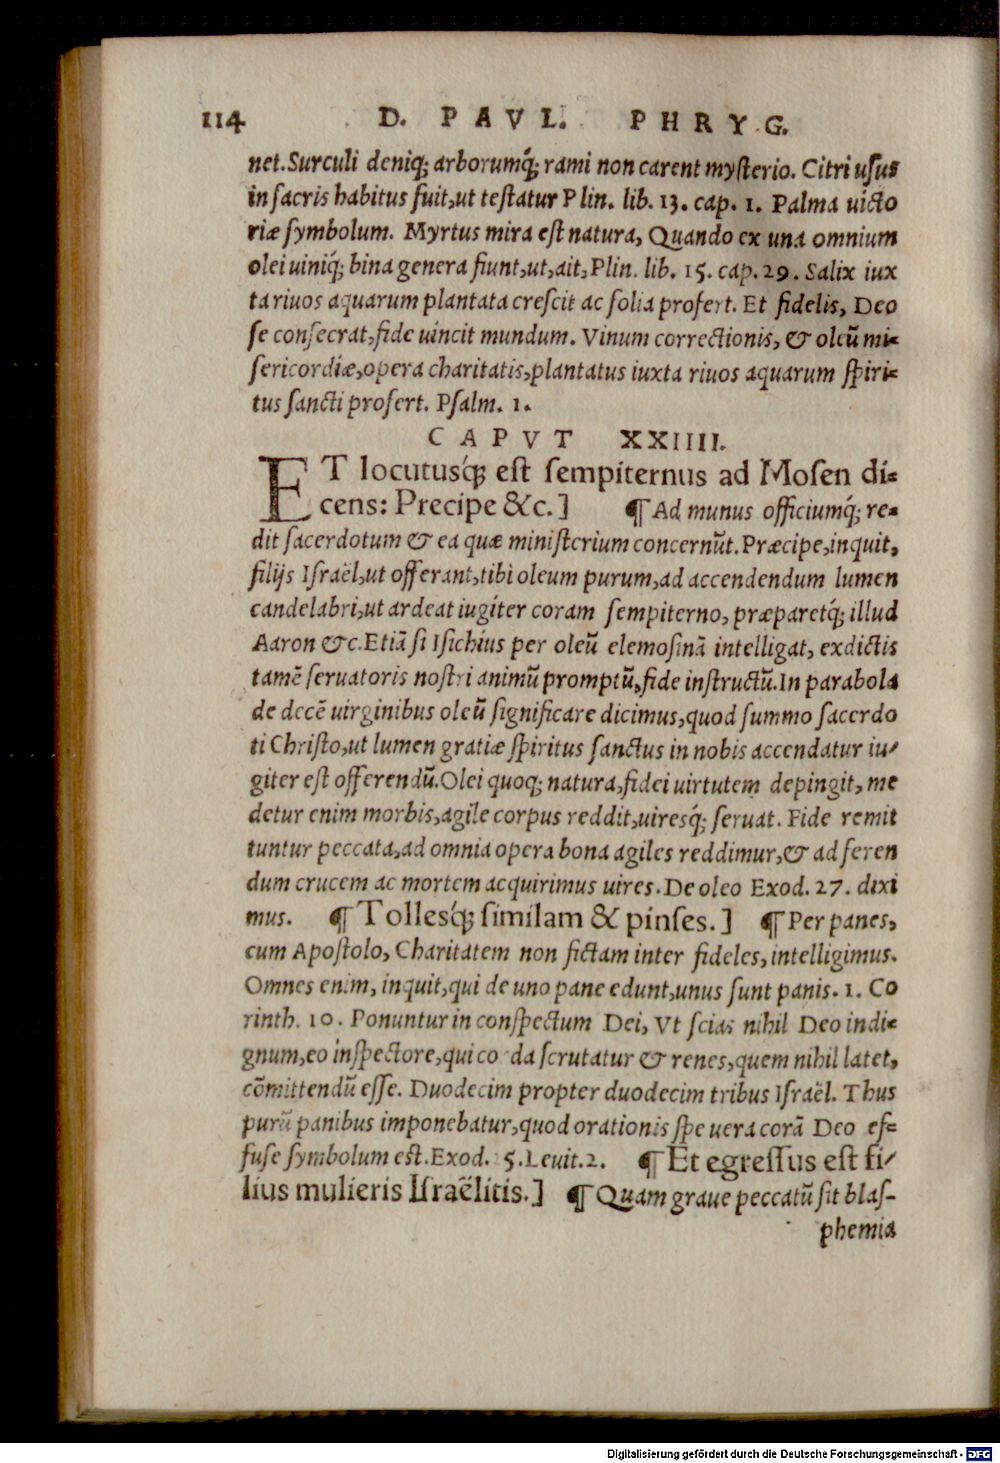 114 D. PAVL. PHRYG.
net. Surculi deniq; arborumq́; rami non carent mysterio. Citri usus
in sacris habitus fuit, ut testatur Plin. lib. 13. cap. 1. Palma uicto
riæ symbolum. Myrtus mira est natura, Quando ex una omnium
olei uiniq́; bina genera fiunt, ut, ait, Plin. lib. 15. cap. 29. Salix iux
ta riuos aquarum plantata crescit ac folia profert. Et fidelis, Deo
se consecrat, fide uincit mundum. Vinum correctionis, & oleũ mi-
sericordiæ, opera charitatis, plantatus iuxta riuos aquarum spiri-
tus sancti profert. Psalm. 1.
CAPVT XXIIII.
ET locutusq́; est sempiternus ad Mosen di-
cens: Precipe &c.] ¶ Ad munus officiumq́; re-
dit sacerdotum & ea quæ ministerium concernũt. Præcipe, inquit,
filijs Israël, ut offerant, tibi oleum purum, ad accendendum lumen
candelabri, ut ardeat iugiter coram sempiterno, præparetq́; illud
Aaron &c. Etiã si Isichius per oleũ elemosinã intelligat, ex dictis
tamẽ seruatoris nostri animũ promptũ, fide instructũ. In parabola
de decẽ uirginibus oleũ significare dicimus, quod summo sacerdo
ti Christo, ut lumen gratiæ spiritus sanctus in nobis accendatur iu-
giter est offerendũ. Olei quoq; natura, fidei uirtutem depingit, me
detur enim morbis, agile corpus reddit, uiresq́; seruat. Fide remit
tuntur peccata, ad omnia opera bona agiles reddimur, & ad feren
dum crucem ac mortem acquirimus uires. De oleo Exod. 27. dixi
mus. ¶ Tollesq́; similam & pinses.] ¶ Per panes,
cum Apostolo, Charitatem non fictam inter fideles, intelligimus.
Omnes enim, inquit, qui de uno pane edunt, unus sunt panis. 1. Co
rinth. 10. Ponuntur in conspectum Dei, Vt scias nihil Deo indi-
gnum, eo inspectore, qui co da scrutatur & renes, quem nihil latet,
cõmittendũ esse. Duodecim propter duodecim tribus Israël. Thus
purũ panibus imponebatur, quod orationis spe uera corã Deo ef-
fuse symbolum est. Exod. 5. Leuit. 2. ¶ Et egressus est fi-
lius mulieris Israëlitis.] ¶ Quam graue peccatũ sit blas-
phemia
Digitalisierung gefördert durch die Deutsche Forschungsgemeinschaft - DFG